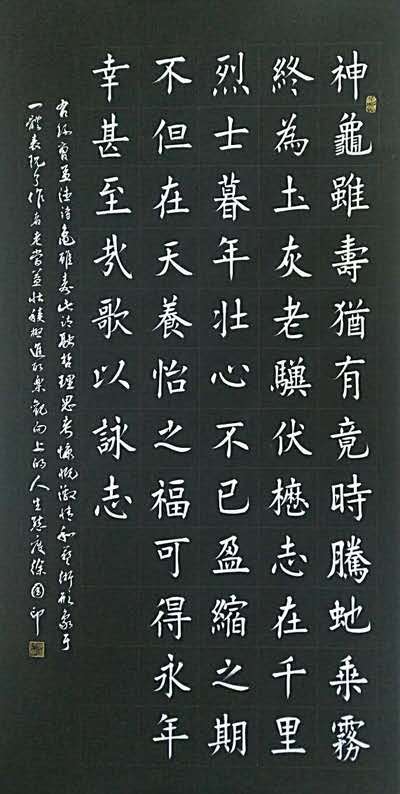 神龜雖壽猶有竟時騰虵乘霧
終為圡灰老驥伏櫪志在千里
烈士暮年壯心不已盈縮之期
不但在天養怡之福可得永年
幸甚至哉歌以詠志
右録曹孟德詩龜雖壽此詩融哲理思考慷慨激情和藝術形象于
一體表現了作者老當益壯積極進取樂觀向上的人生態度徐國印